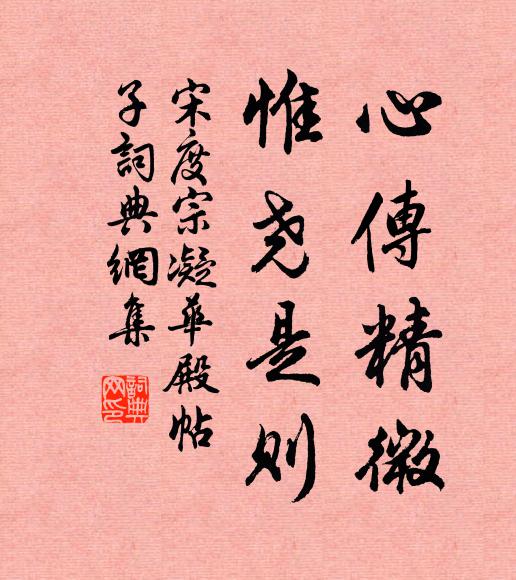 心傳精微
惟尧是则
宋度宗凝華殿帖
子詞典網集
詞典网印